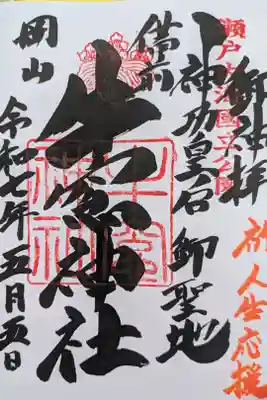 御神拝
祈 人生応援
瀬戸内海国立公園
神功皇后 御聖地
備前
牛窓神社
牛窓神社
岡山
令和七年五月五日